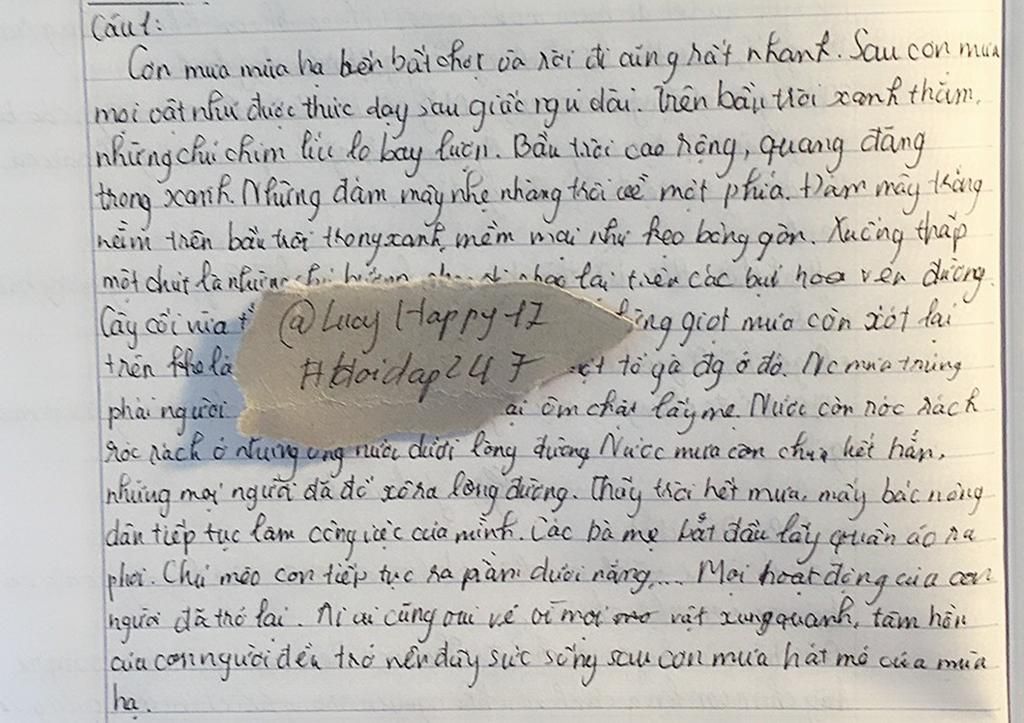 Câu 1:
Cơn mưa mùa hạ đến bất chợt và rời đi cũng rất nhanh. Sau cơn mưa
mọi vật như được thức dạy sau giấc ngủ dài. Trên bầu trời xanh thẳm,
những chú chim líu lo bay lượn. Bầu trời cao rộng, quang đãng
trong xanh. Những đám mây nhẹ nhàng trôi về một phía. Đám mây trắng
nằm trên bầu trời trong xanh, mềm mại như kẹo bông gòn. Xuống thấp
một chút là những chú lại trên các bụi hoa vên đường.
Cây cối vừa @Lucy Happy 17 những giọt mưa còn xót lại
trên khe lá #Hoidap247 một tổ gà đg ở đó. Nc mưa trúng
phải người lại ôm chặt lấy mẹ. Nước còn róc rách
róc rách ở những ống nước dưới lòng đường. Nước mưa còn chưa hết hẳn,
nhưng mọi người đã đổ xô ra lòng đường. Thấy trời hết mưa, mấy bác nông
dân tiếp tục làm công việc của mình. Các bà mẹ bắt đầu lấy quần áo ra
phơi. Chú mèo con tiếp tục ra nằm dưới nắng,... Mọi hoạt động của con
người đã trở lại. Ai ai cũng vui vẻ vì mọi vật xung quanh, tâm hồn
của con người đều trở nên đầy sức sống sau cơn mưa hát mẻ của mùa
hạ.